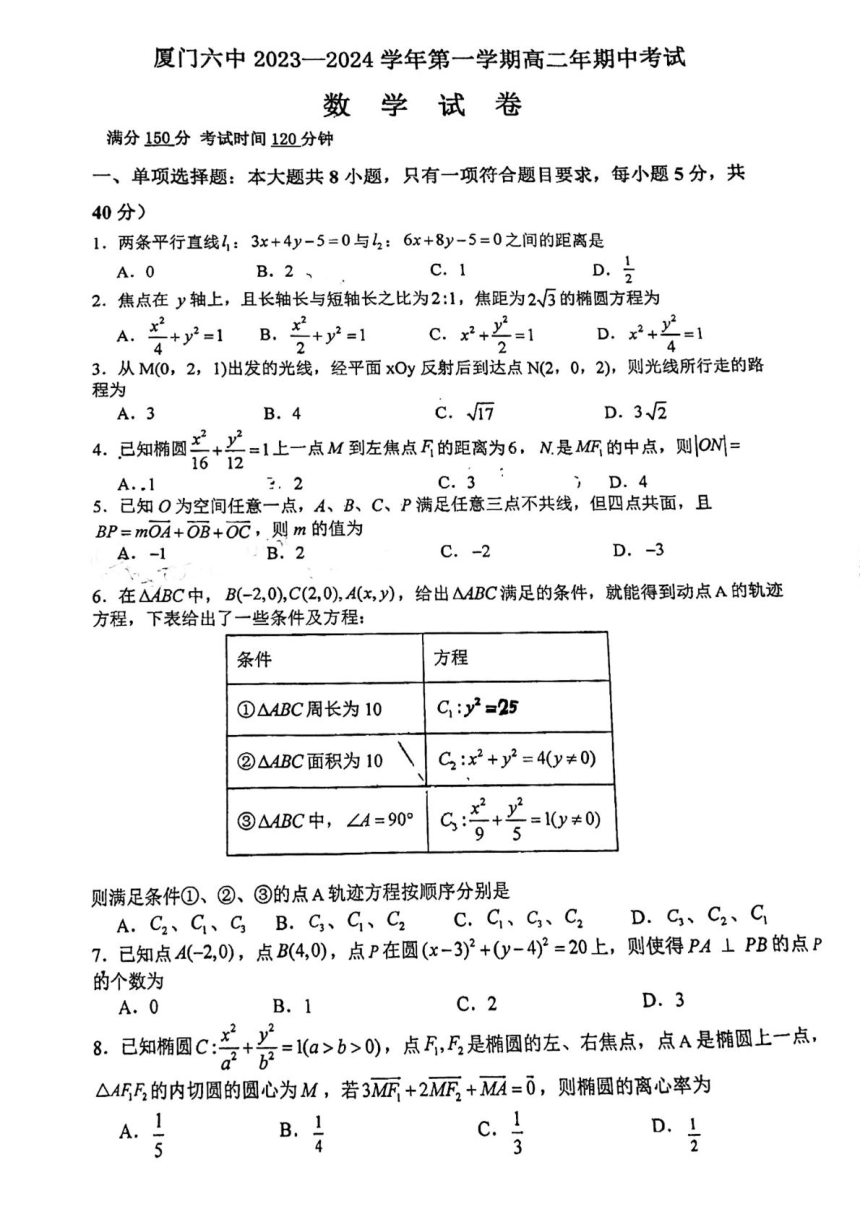 厦门六中 2023—2024 学年第一学期高二年期中考试
数 学 试 卷
满分 150 分 考试时间 120 分钟
一、单项选择题：本大题共 8 小题，只有一项符合题目要求，每小题 5 分，共
40 分）
1．两条平行直线 l₁：3x+4y−5=0 与 l₂：6x+8y−5=0 之间的距离是
A．0 B．2 C．1 D．1/2
2．焦点在 y 轴上，且长轴长与短轴长之比为 2:1，焦距为 2√3 的椭圆方程为
A．x²/4+y²=1 B．x²/2+y²=1 C．x²+y²/2=1 D．x²+y²/4=1
3．从 M(0，2，1)出发的光线，经平面 xOy 反射后到达点 N(2，0，2)，则光线所行走的路
程为
A．3 B．4 C．√17 D．3√2
4．已知椭圆 x²/16+y²/12=1 上一点 M 到左焦点 F₁ 的距离为 6，N 是 MF₁ 的中点，则|ON|=
A．1 2 C．3 D．4
5．已知 O 为空间任意一点，A、B、C、P 满足任意三点不共线，但四点共面，且
BP=mOA+OB+OC，则 m 的值为
A．−1 B．2 C．−2 D．−3
6．在△ABC 中，B(−2,0),C(2,0),A(x,y)，给出△ABC 满足的条件，就能得到动点 A 的轨迹
方程，下表给出了一些条件及方程：
条件 方程
①△ABC 周长为 10 C₁:y²=25
②△ABC 面积为 10 C₂:x²+y²=4(y≠0)
③△ABC 中，∠A=90° C₃:x²/9+y²/5=1(y≠0)
则满足条件①、②、③的点 A 轨迹方程按顺序分别是
A．C₂、C₁、C₃ B．C₃、C₁、C₂ C．C₁、C₃、C₂ D．C₃、C₂、C₁
7．已知点 A(−2,0)，点 B(4,0)，点 P 在圆 (x−3)²+(y−4)²=20 上，则使得 PA ⊥ PB 的点 P
的个数为
A．0 B．1 C．2 D．3
8．已知椭圆 C:x²/a²+y²/b²=1(a>b>0)，点 F₁,F₂ 是椭圆的左、右焦点，点 A 是椭圆上一点，
△AF₁F₂ 的内切圆的圆心为 M，若 3MF₁+2MF₂+MA=0，则椭圆的离心率为
A．1/5 B．1/4 C．1/3 D．1/2